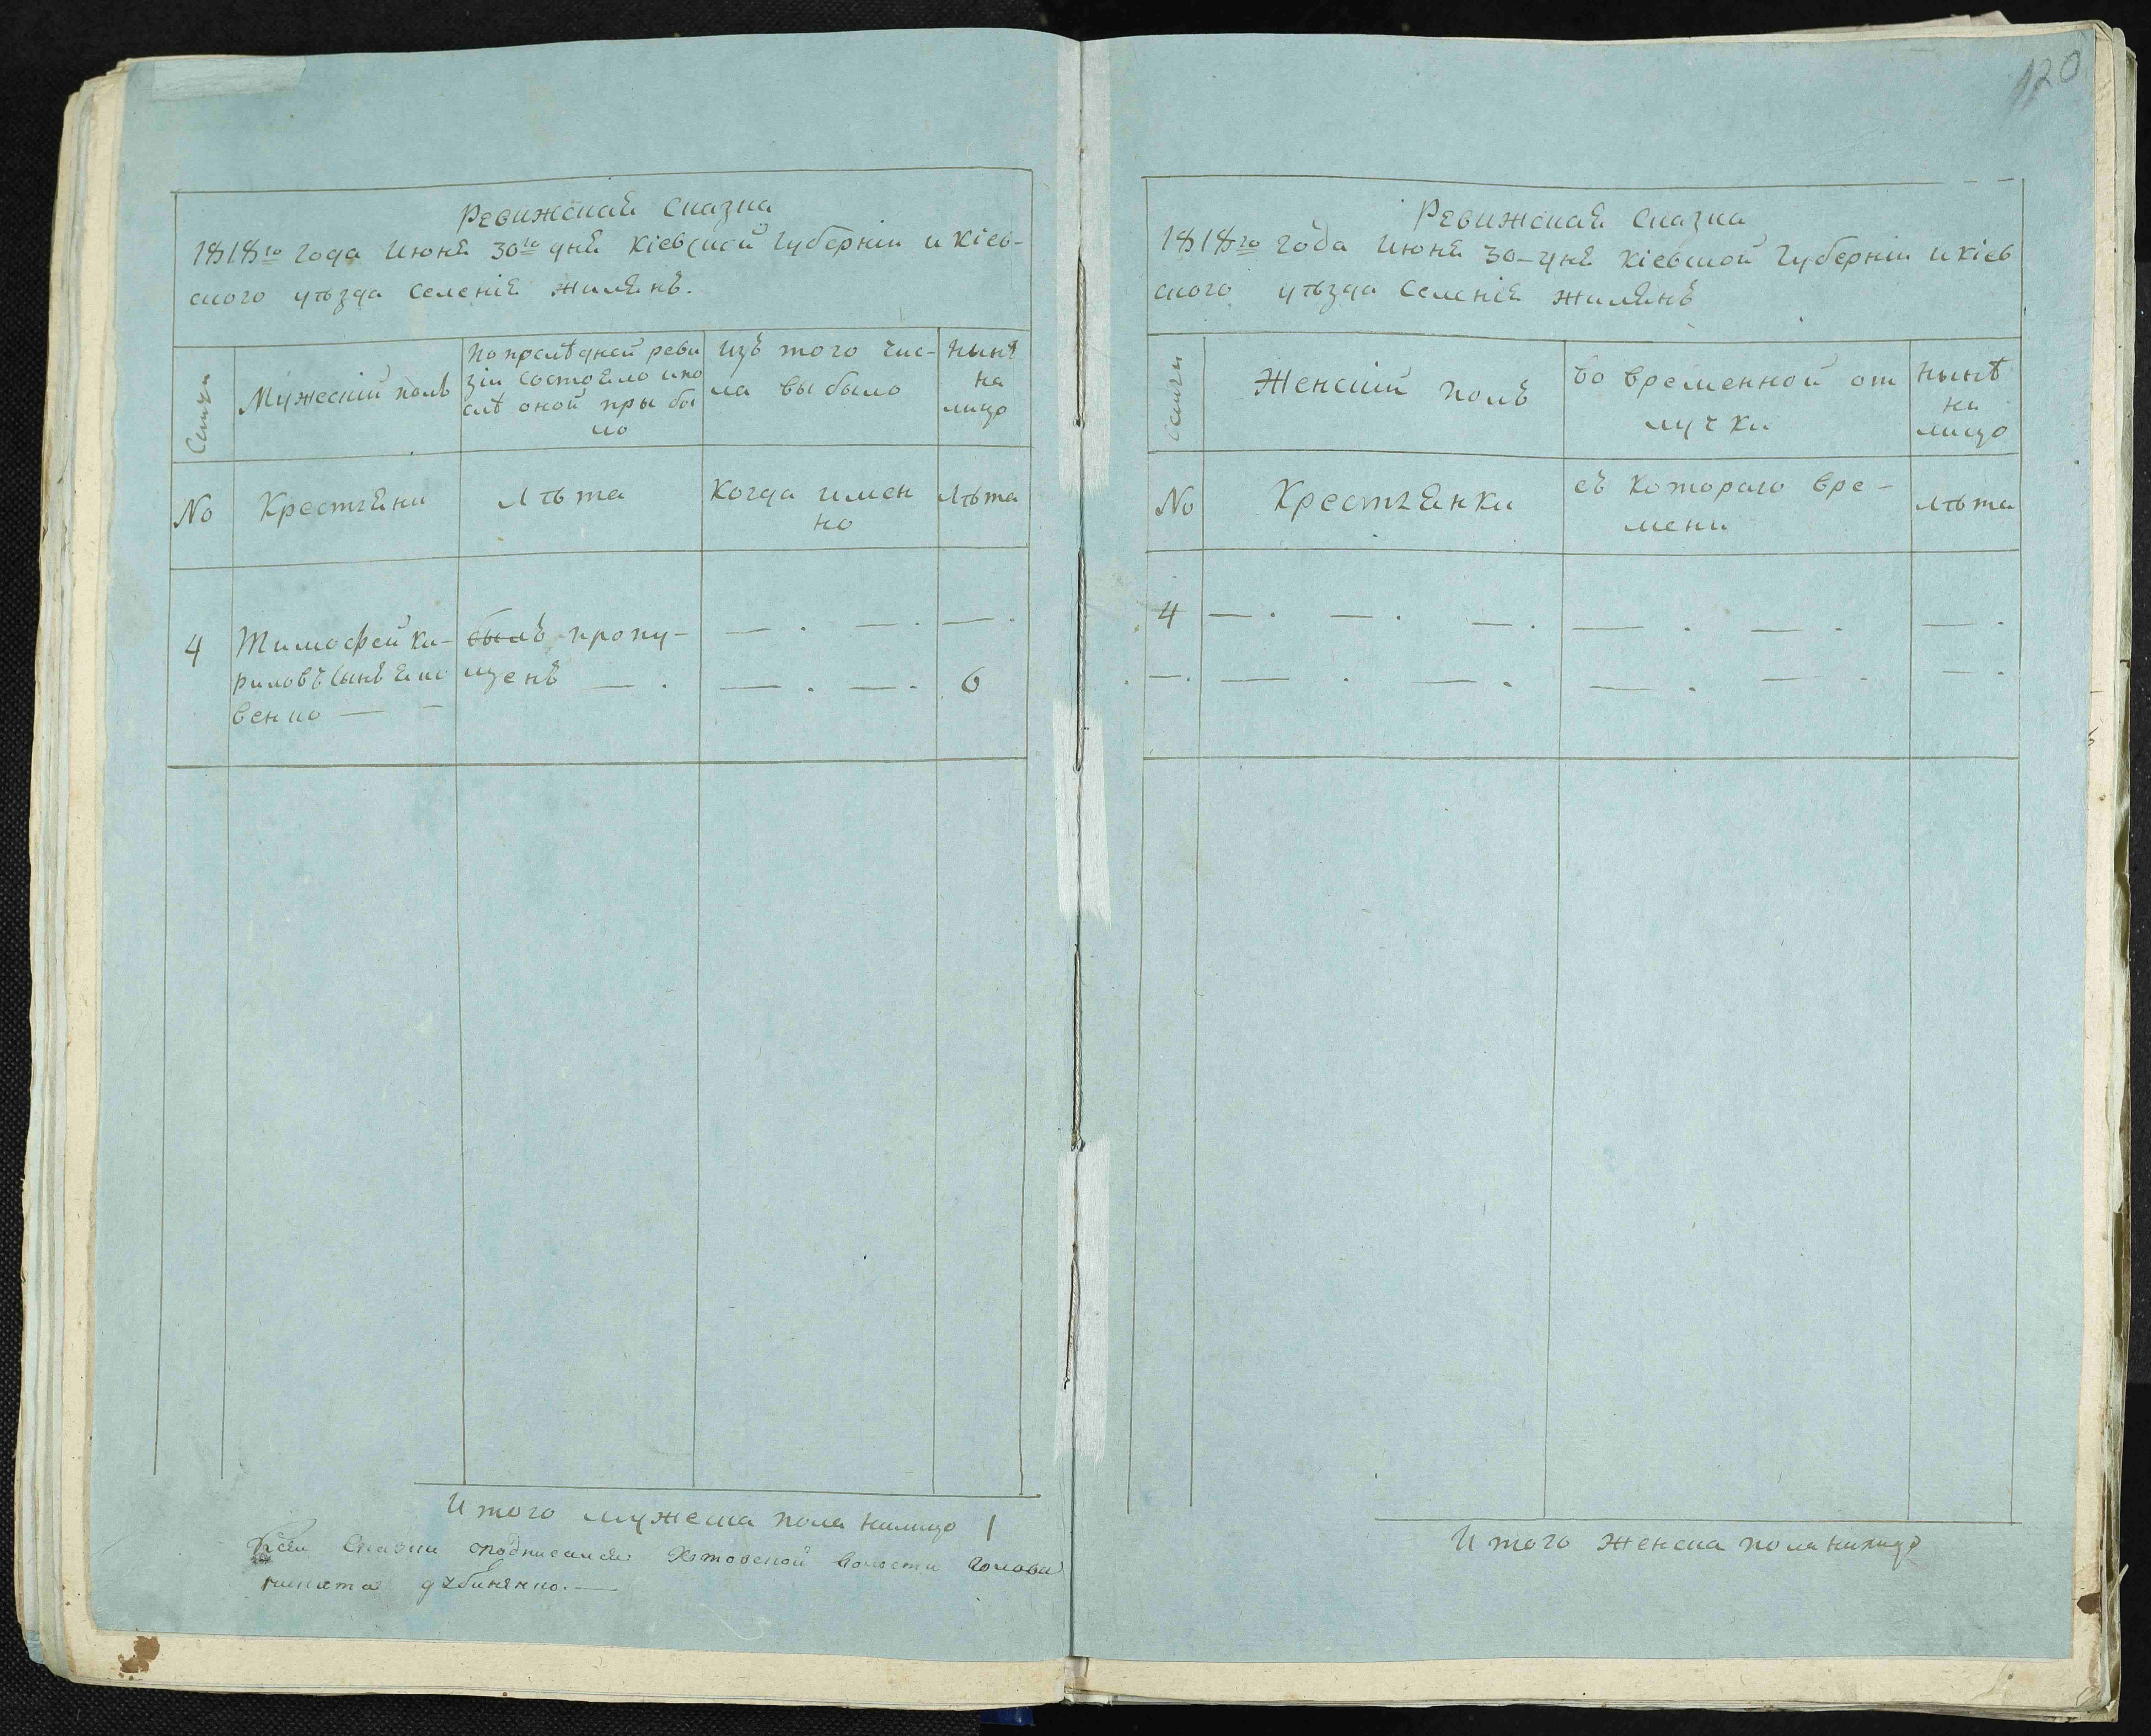 120
Ревижская Сказка
1818го Года Июня 30го дня Кіевской Губерніи и Кіев-
ского уѣзда Селенія Жилянъ.
Семьи
Мужескій полъ
По прслѣдней реви
зіи состояло и по
слѣ оной прыбы
ло
Изъ того чис-
ла выбыло
Нынѣ
на
лицо
No
Крестьяни
Лѣта
Когда имен
но
Лѣта
4
Тимофей Ки-
риловъ Сынъ Яко
венко — —
былъ пропу-
щенъ — .
— . — .
— .
— . — .
6
Итого мужеска пола налицо 1
Сказки подписался Хотовской волости Голова
Ревижская Сказка
1818го Года Июня 30-дня Кіевской Губерніи и Кіев
ского уѣзда Селенія Жилянъ
Семьи
Женскій полъ
во временной от
лучки
Нынѣ
на
лицо
No
Крестьянки
съ котораго вре-
мени
Лѣта
4 — . — . — . — . — . — .
— . — . — . — . — . — .
Итого женска пола налицо